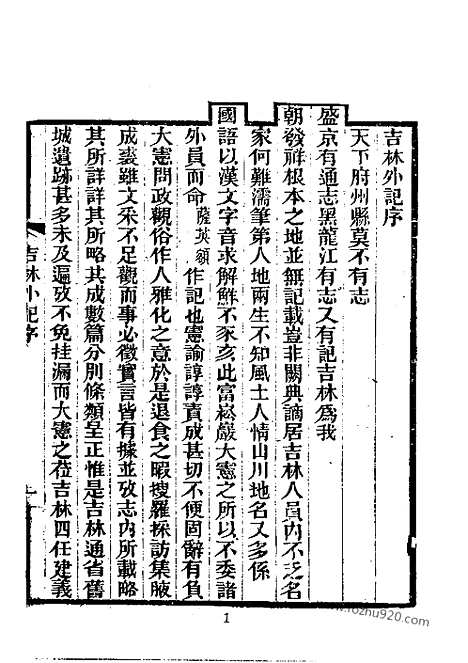 吉林外記序
天下府州縣莫不有志
盛京有通志黑龍江有志又有記吉林為我
朝發祥根本之地並無記載豈非闕典謫居吉林人員內不乏名
家何難濡筆第人地兩生不知風土人情山川地名又多係
國語以漢文字音求解鮮不豕亥此富崧巖大憲之所以不委諸
外員而命薩英額作記也憲諭諄諄責成甚切不便固辭有負
大憲問政觀俗作人雅化之意於是退食之暇搜羅採訪集腋
成裘雖文采不足觀而事必徵實言皆有據並攷志內所載略
其所詳詳其所略其成數篇分別條類呈正惟是吉林通省舊
城遺跡甚多未及遍攷不免挂漏而大憲之莅吉林四任建義
吉林外記序
一
1
www.rozhu920.com